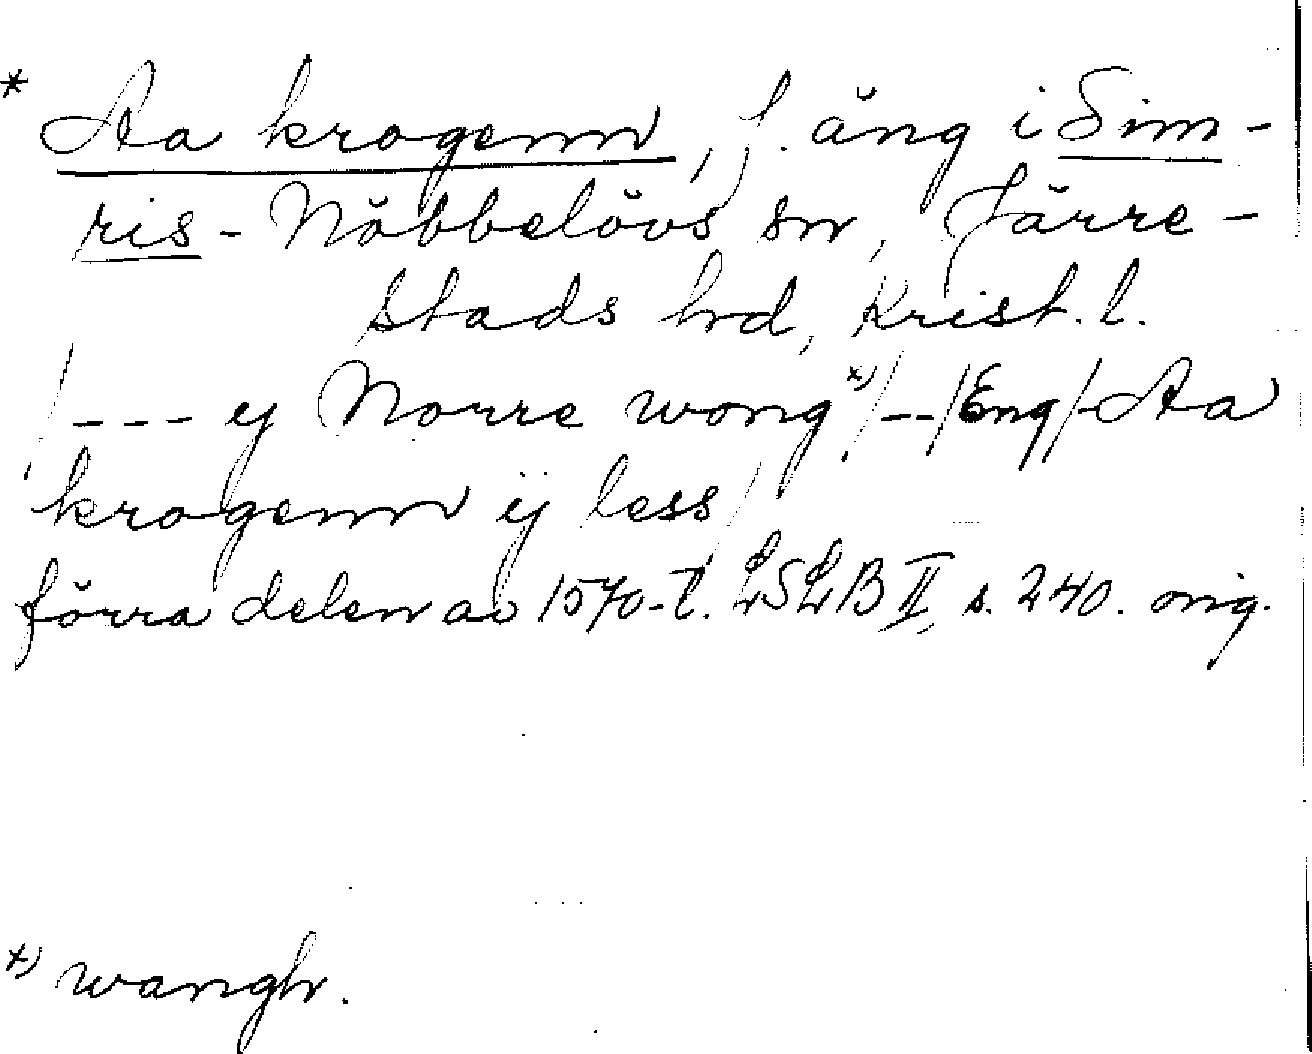 * Aa krogenn, f. äng i Sim-
ris-Nöbbelövs sn, Järre-
stads hd, Krist. l.
/--- ij Norre wong*)/--/Eng/-Aa
krogenn ij less/
förra delen av 1570-t. LSLB II, s. 240. orig.
*) wangh.